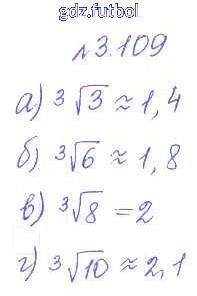 gdz.futbol
№3.109
а) ³√3 ≈ 1,4
б) ³√6 ≈ 1,8
в) ³√8 = 2
г) ³√10 ≈ 2,1